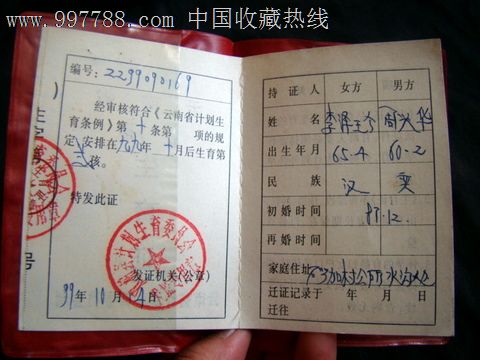 www.997788.com 中国收藏热线
编号: 2299090169
经审核符合《云南省计划生
育条例》第十条第 项的规
定,安排在九九年十月后生育第
孩。
特发此证
计划生育委员会
发证机关(公章)
99年10月14日
号
持证人 女方 男方
姓名
出生年月 65.4 60.2
民族 汉
初婚时间 87.12.
再婚时间
家庭住址
迁证记录于 年 月 日
迁往